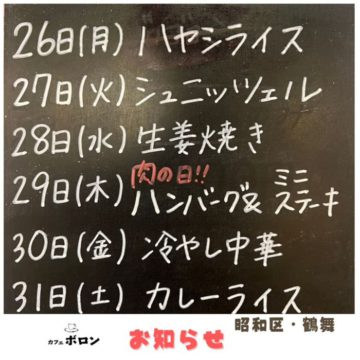 26日(月) ハヤシライス
27日(火) シュニッツェル
28日(水) 生姜焼き
肉の日!!
29日(木) ハンバーグ& ミニステーキ
30日(金) 冷やし中華
31日(土) カレーライス
昭和区・鶴舞
カフェ ボロン
お知らせ